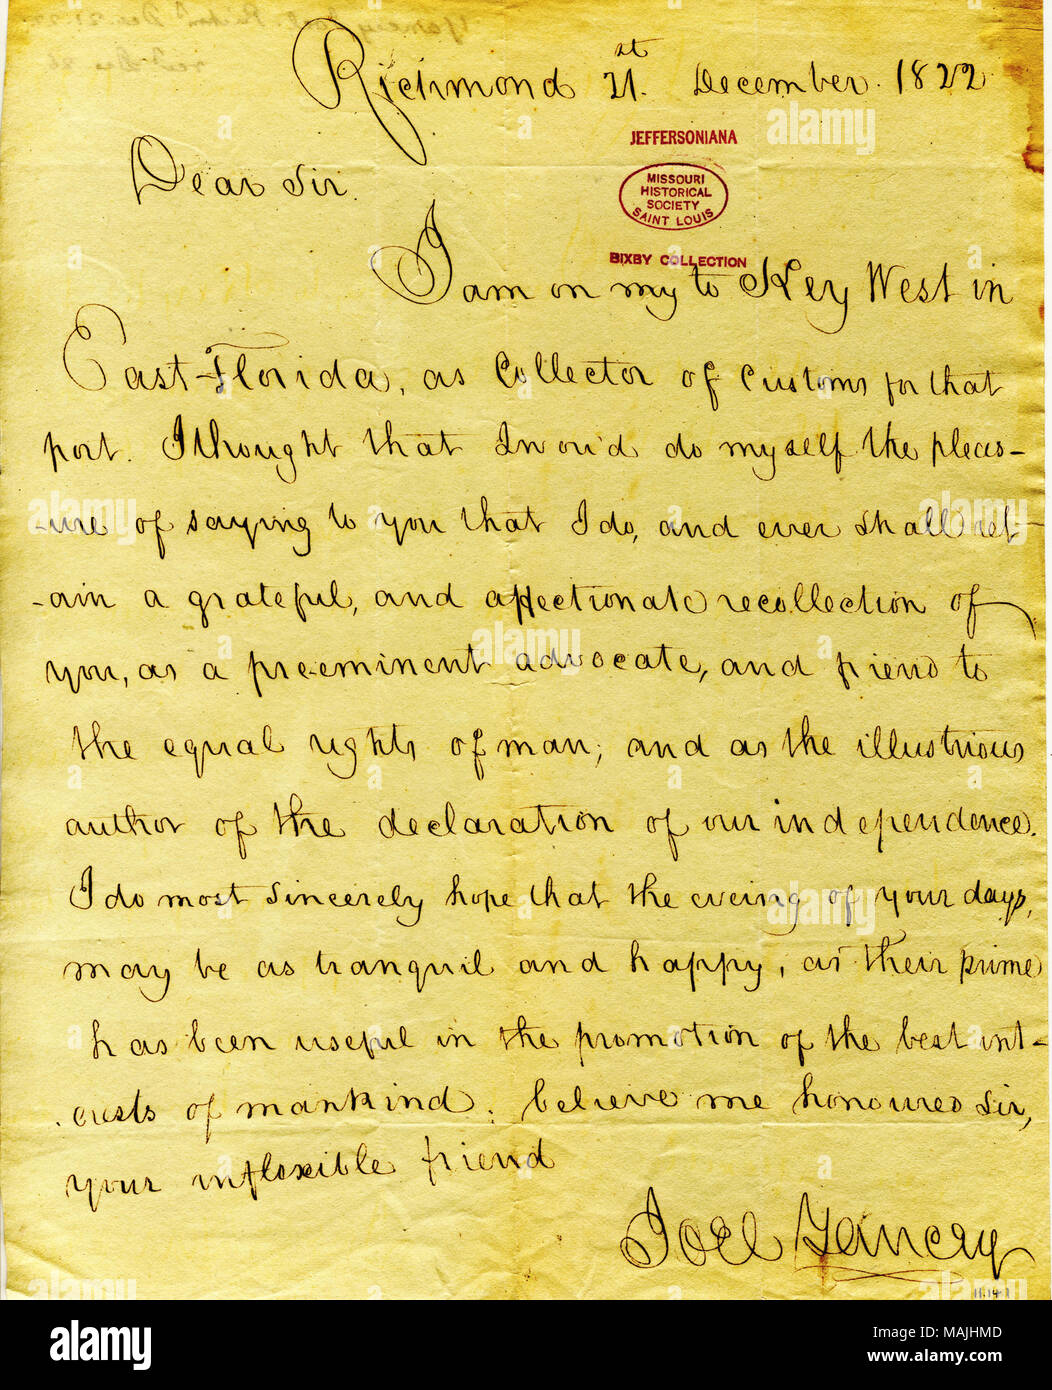 Richmond 21st. December. 1822
JEFFERSONIANA
Dear Sir.
MISSOURI
HISTORICAL
SOCIETY
SAINT LOUIS
BIXBY COLLECTION
I am on my to Key West in
East-Florida, as Collector of Customs for that
port. I thought that I wou'd do myself the pleas-
-ure of saying to you that I do, and ever shall ret-
-ain a grateful, and affectionate recollection of
you, as a pre-eminent advocate, and friend to
the equal rights of man; and as the illustrious
author of the declaration of our independence.
I do most sincerely hope that the eveing of your days,
may be as tranquil and happy, as their prime
has been useful in the promotion of the best int-
erests of mankind. believe me honoured Sir,
your inflexible friend
Joel Yancey
11.14.1
alamy
Image ID: MAJHMD
www.alamy.com